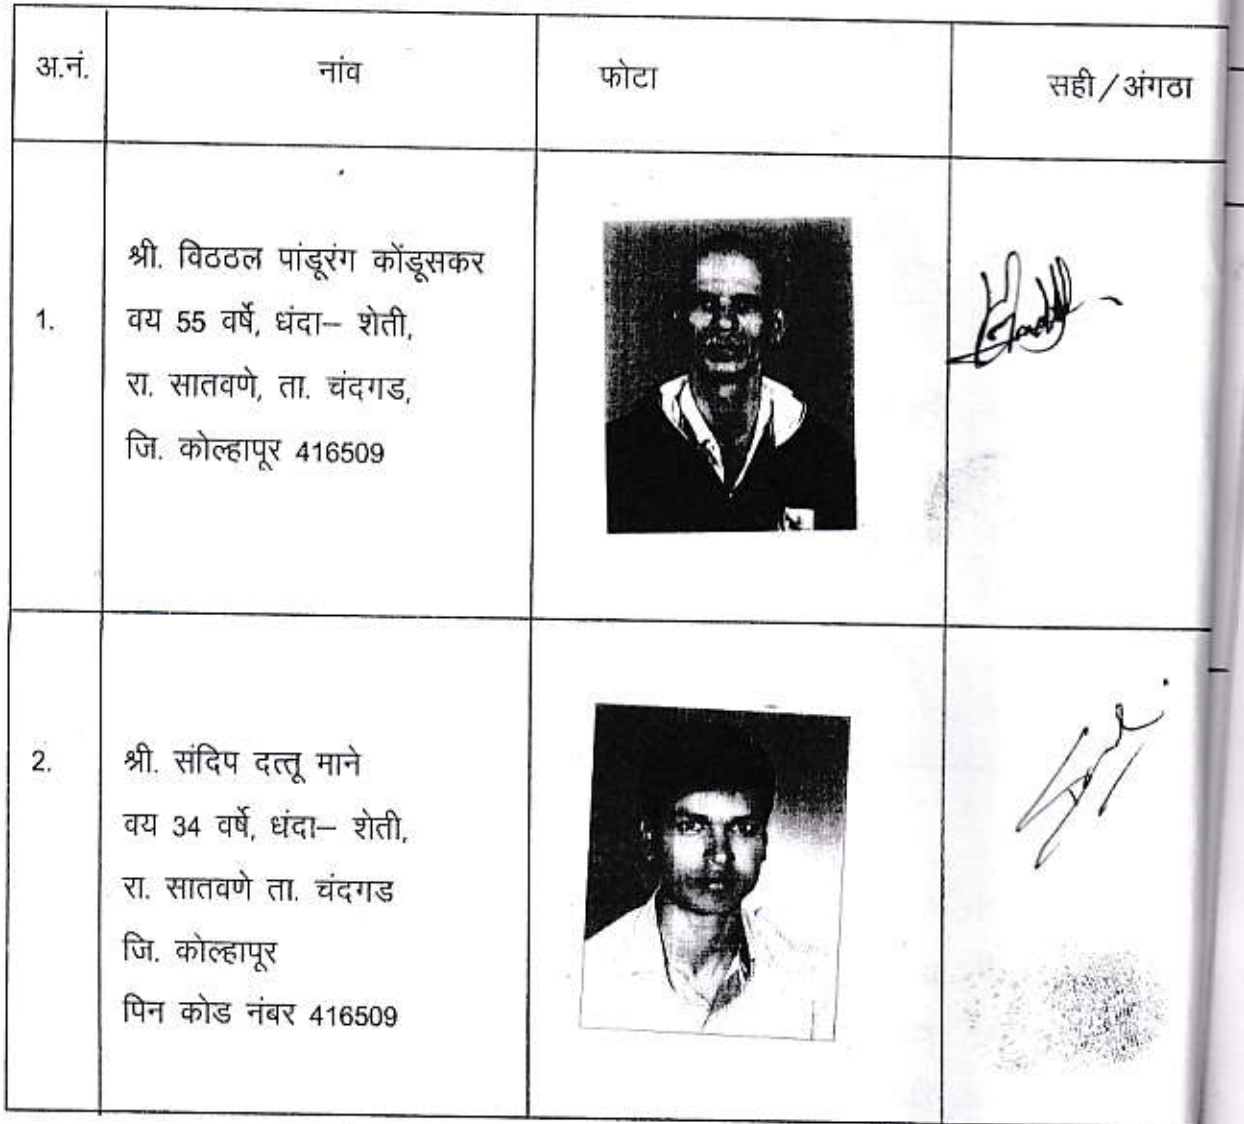 अ.नं. नांव फोटा सही/अंगठा
1.
श्री. विठठल पांडूरंग कोंडूसकर
वय 55 वर्षे, धंदा– शेती,
रा. सातवणे, ता. चंदगड,
जि. कोल्हापूर 416509
2.
श्री. संदिप दत्तू माने
वय 34 वर्षे, धंदा– शेती,
रा. सातवणे ता. चंदगड
जि. कोल्हापूर
पिन कोड नंबर 416509